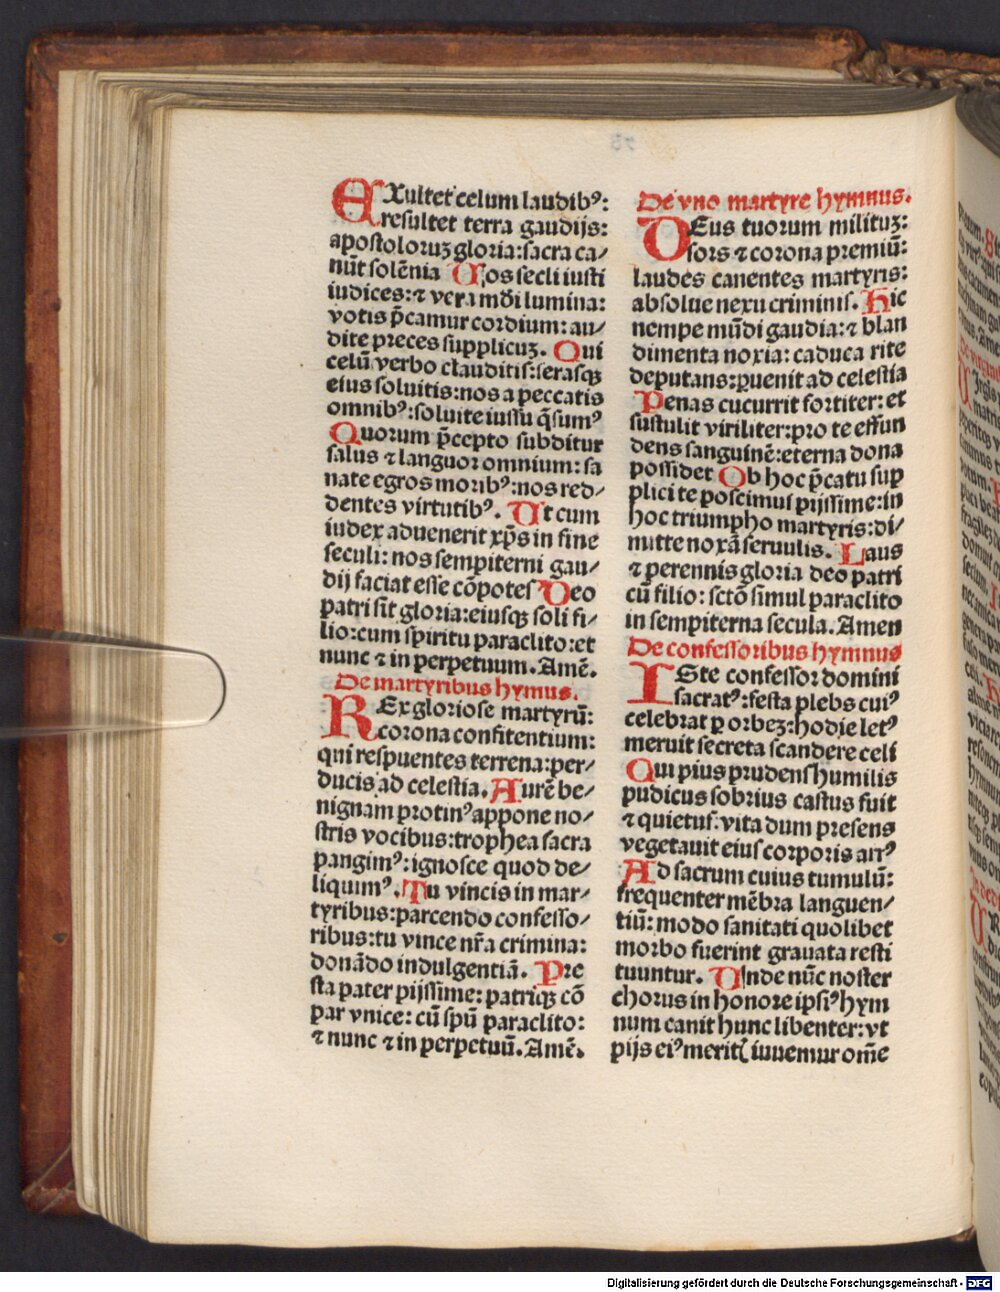 EXultet celum laudibꝰ:
resultet terra gaudijs:
apostoloruꝫ gloria: sacra ca/
nūt solēnia Uos secli iusti
iudices: ⁊ vera mūdi lumina:
votis p̄camur cordium: au/
dite preces supplicuꝫ. Qui
celū verbo clauditis: serasqꝫ
eius soluitis: nos a peccatis
omnibꝰ: soluite iussu q̄sumꝰ
Quorum p̄cepto subditur
salus ⁊ languor omnium: sa
nate egros moribꝰ: nos red/
dentes virtutibꝰ. Ut cum
iudex aduenerit xp̄s in fine
seculi: nos sempiterni gau/
dij faciat esse cōpotes Deo
patri sit gloria: eiusqꝫ soli fi/
lio: cum spiritu paraclito: et
nunc ⁊ in perpetuum. Amē.
De martyribus hymus.
REx gloriose martyrū:
corona confitentium:
qui respuentes terrena: per/
ducis ad celestia. Aurē be/
nignam protinꝰ appone no/
stris vocibus: trophea sacra
pangimꝰ: ignosce quod de/
liquimꝰ. Tu vincis in mar/
tyribus: parcendo confesso/
ribus: tu vince nr̄a crimina:
donādo indulgentiā. Pre
sta pater pijssime: patriqꝫ cō
par vnice: cū spū paraclito:
⁊ nunc ⁊ in perpetuū. Amē.
De vno martyre hymnus.
DEus tuorum milituꝫ:
sors ⁊ corona premiū:
laudes canentes martyris:
absolue nexu criminis. Hic
nempe mūdi gaudia: ⁊ blan
dimenta noxia: caduca rite
deputans: ꝑuenit ad celestia
Penas cucurrit fortiter: et
sustulit viriliter: pro te effun
dens sanguinē: eterna dona
possidet Ob hoc p̄catu sup
plici te poscimus pijssime: in
hoc triumpho martyris: di/
mitte noxā seruulis. Laus
⁊ perennis gloria deo patri
cū filio: sctō simul paraclito
in sempiterna secula. Amen
De confessoribus hymnus
ISte confessor domini
sacratꝰ: festa plebs cuiꝰ
celebrat ꝑ orbeꝫ: hodie letꝰ
meruit secreta scandere celi
Qui pius prudens humilis
pudicus sobrius castus fuit
⁊ quietus: vita dum presens
vegetauit eius corporis artꝰ
Ad sacrum cuius tumulū:
frequenter mēbra languen/
tiū: modo sanitati quolibet
morbo fuerint grauata resti
tuuntur. Unde nūc noster
chorus in honore ipsiꝰ hym
num canit hunc libenter: vt
pijs eiꝰ meritꝭ iuuemur om̄e
Digitalisierung gefördert durch die Deutsche Forschungsgemeinschaft - DFG